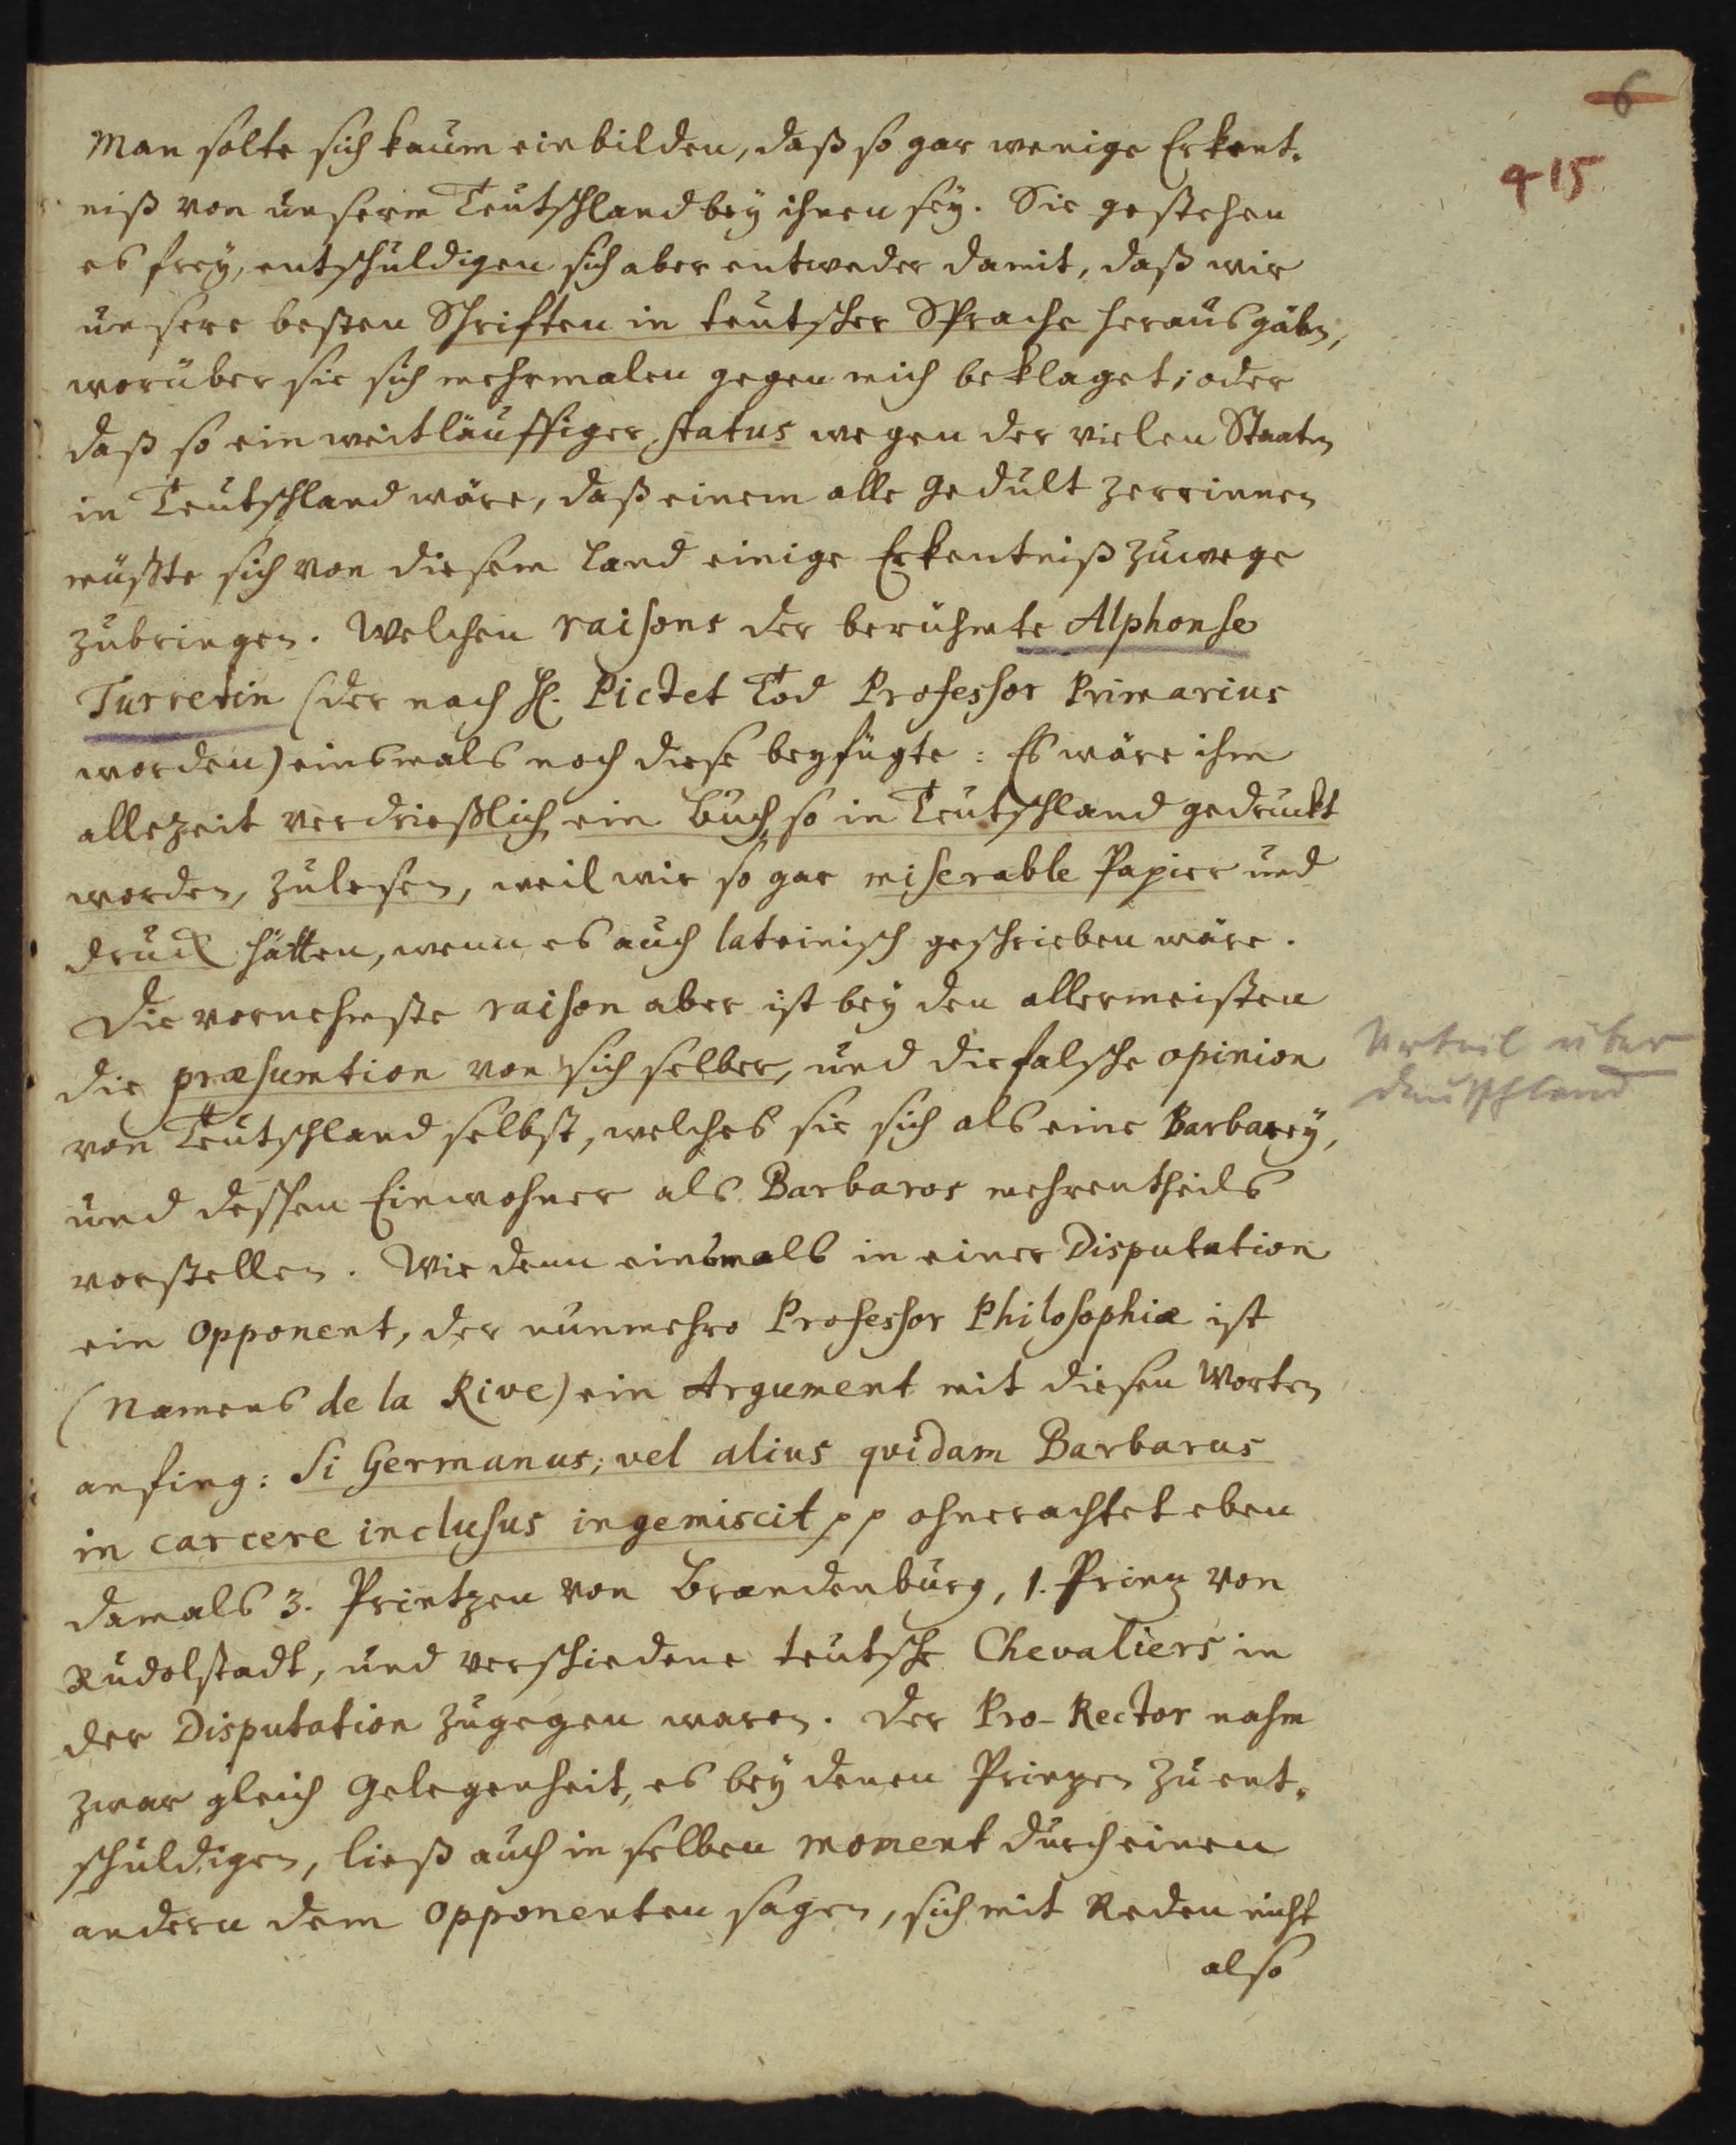 6
415
Man solte sich kaum einbilden, daß so gar wenige Erkent-
niß von unserm Teutschland bey ihnen sey. Sie gestehen
es frey, entschuldigen sich aber entweder damit, daß wir
unsere besten Schriften in teutscher Sprache herausgäben,
worüber sie sich mehrmalen gegen mich beklaget; oder
daß so ein weitläuffiger status wegen der vielen Staaten
in Teutschland wäre, daß einem alle Gedult zerrinnen
müßte sich von diesem Land einige Erkentniß zuwege
zubringen. Welchen raisons der berühmte Alphonse
Turretin (der nach H. Pictet Tod Professor Primarius
worden) einsmals noch diese beyfügte: Es wäre ihm
allezeit verdrießlich, ein Buch, so in Teutschland gedruckt
worden, zulesen, weil wir so gar miserable Papier und
Druck hätten, wenn es auch lateinisch geschrieben wäre.
Die vornehmste raison aber ist bey den allermeisten
die præsumtion von sich selber, und die falsche opinion
von Teutschland selbst, welches sie sich als eine Barbarey,
und dessen Einwohner als Barbaros mehrentheils
vorstellen. Wie denn einsmals in einer Disputation
ein Opponent, der nunmehro Professor Philosophiæ ist
(Namens de la Rive) ein Argument mit diesen Worten
anfing: Si Germanus, vel alius quidam Barbarus
in carcere inclusus ingemiscit pp ohnerachtet eben
damals 3. Printzen von Brandenburg, 1. Prinz von
Rudolstadt, und verschiedene teutsche Chevaliers in
der Disputation zugegen waren. Der Pro-Rector nahm
zwar gleich Gelegenheit, es bey denen Prinzen zu ent-
schuldigen, ließ auch in selben moment durch einen
andern dem Opponenten sagen, sich mit Reden nicht
also
Urteil über
Deutschland